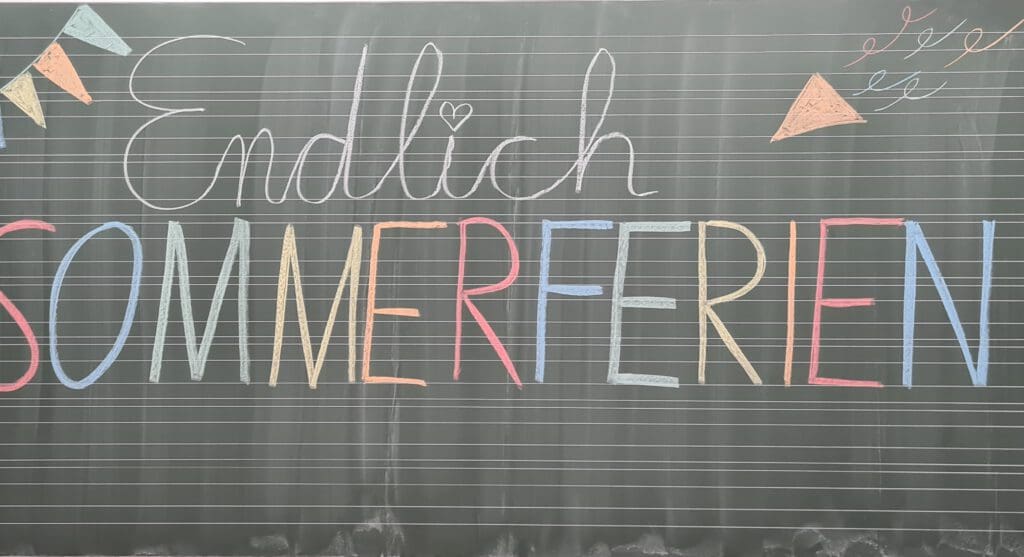 Endlich
SOMMERFERIEN